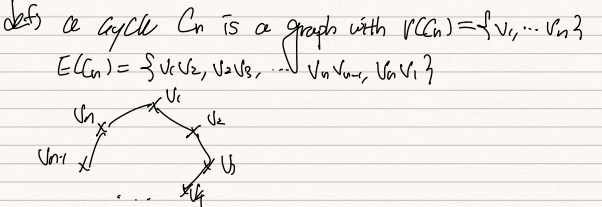 def) a cycle Cn is a graph with V(Cn)={v1,... vn}
E(Cn) = {v1v2, v2v3, ... vnvn-1, vnv1}
v1
vn
v2
vn-1
v3
...
v4